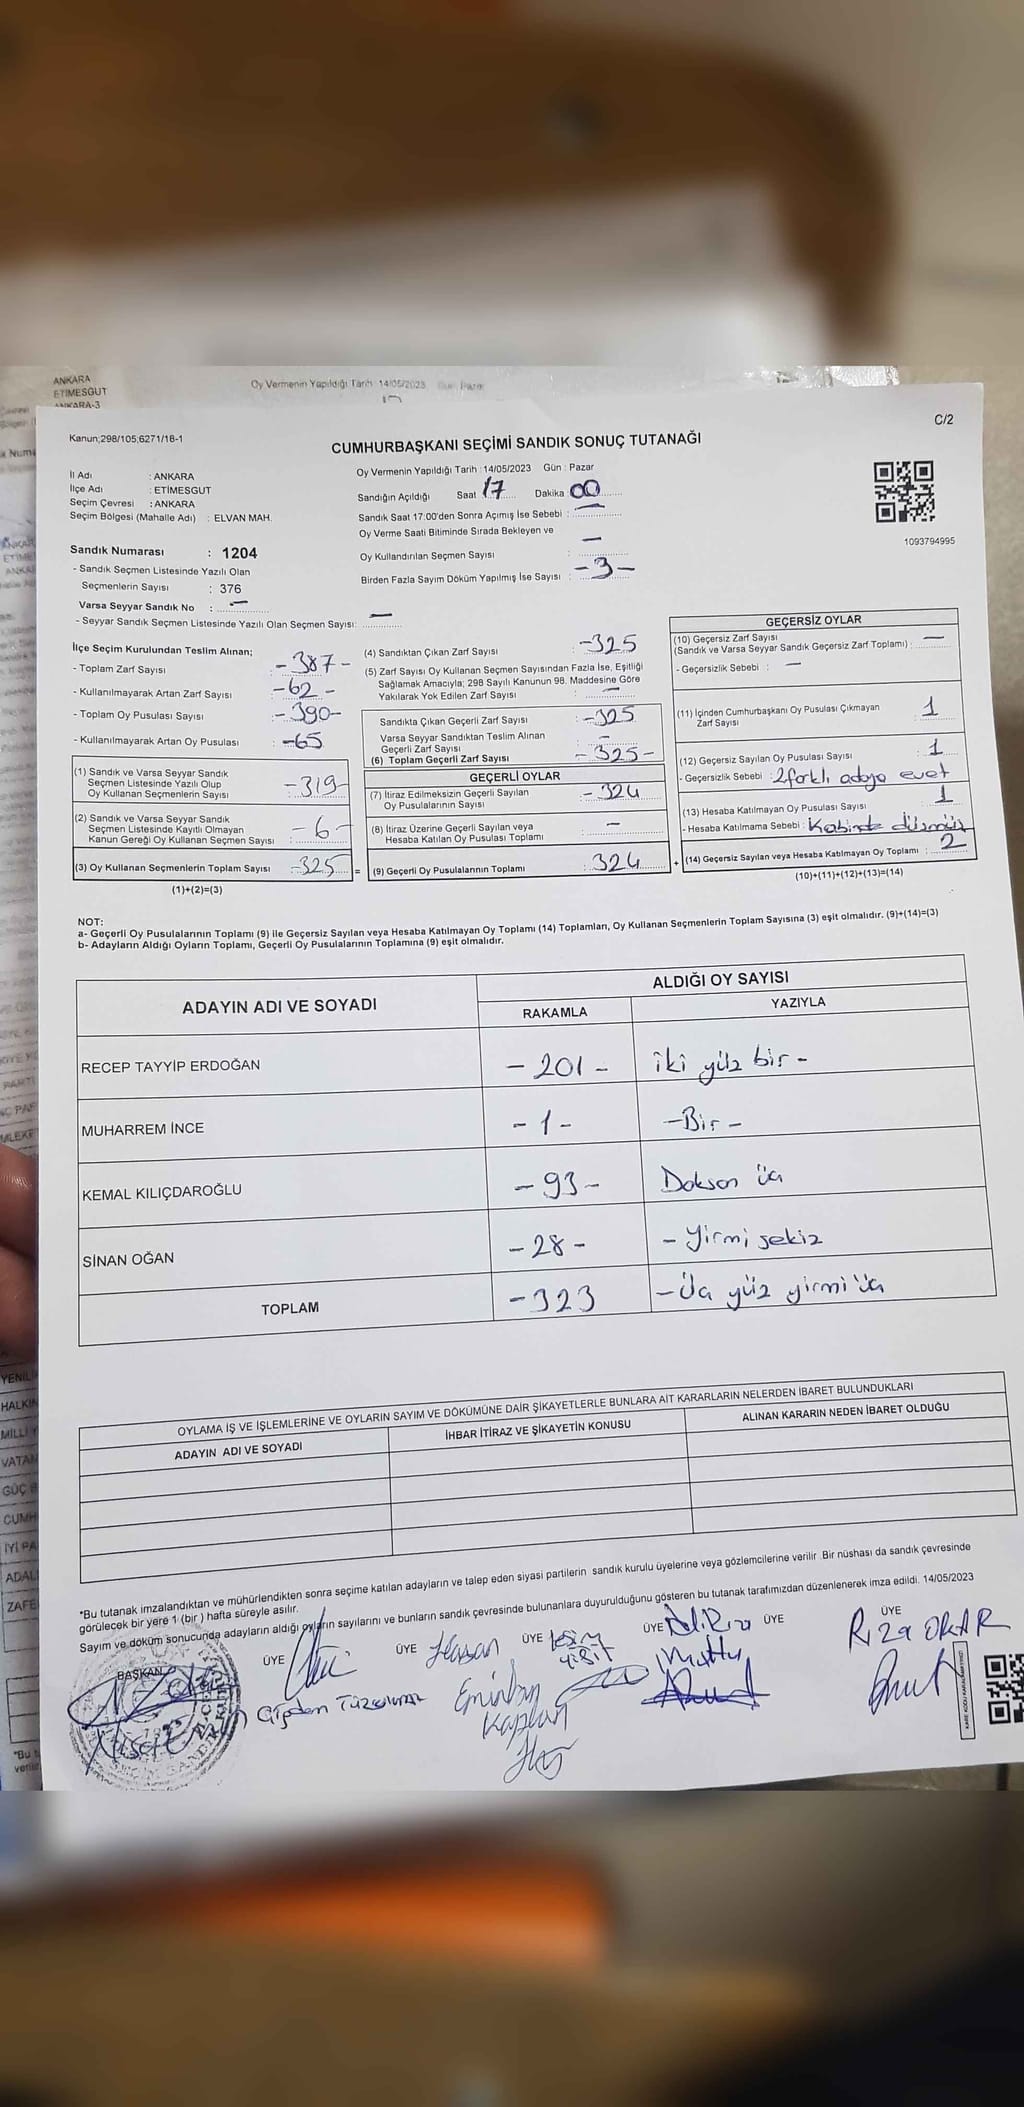 ANKARA
ETİMESGUT
ANKARA-3
Oy Vermenin Yapıldığı Tarih 14/05/2023
C/2
Kanun;298/105;6271/18-1
CUMHURBAŞKANI SEÇİMİ SANDIK SONUÇ TUTANAĞI
İl Adı : ANKARA
İlçe Adı : ETİMESGUT
Seçim Çevresi : ANKARA
Seçim Bölgesi (Mahalle Adı) : ELVAN MAH.
Oy Vermenin Yapıldığı Tarih : 14/05/2023 Gün : Pazar
Sandığın Açıldığı Saat 17 Dakika : 00
Sandık Saat 17:00'den Sonra Açımış İse Sebebi : —
Oy Verme Saati Bitiminde Sırada Bekleyen ve
Oy Kullandırılan Seçmen Sayısı : —
Birden Fazla Sayım Döküm Yapılmış İse Sayısı : -3-
1093794995
Sandık Numarası : 1204
- Sandık Seçmen Listesinde Yazılı Olan
Seçmenlerin Sayısı : 376
Varsa Seyyar Sandık No : —
- Seyyar Sandık Seçmen Listesinde Yazılı Olan Seçmen Sayısı: —
İlçe Seçim Kurulundan Teslim Alınan;
- Toplam Zarf Sayısı : -387-
- Kullanılmayarak Artan Zarf Sayısı : -62-
- Toplam Oy Pusulası Sayısı : -390-
- Kullanılmayarak Artan Oy Pusulası : -65
(1) Sandık ve Varsa Seyyar Sandık
Seçmen Listesinde Yazılı Olup
Oy Kullanan Seçmenlerin Sayısı : -319-
(2) Sandık ve Varsa Seyyar Sandık
Seçmen Listesinde Kayıtlı Olmayan
Kanun Gereği Oy Kullanan Seçmen Sayısı : -6-
(3) Oy Kullanan Seçmenlerin Toplam Sayısı : 325 =
(1)+(2)=(3)
(4) Sandıktan Çıkan Zarf Sayısı : -325
(5) Zarf Sayısı Oy Kullanan Seçmen Sayısından Fazla İse, Eşitliği
Sağlamak Amacıyla; 298 Sayılı Kanunun 98. Maddesine Göre
Yakılarak Yok Edilen Zarf Sayısı : —
Sandıkta Çıkan Geçerli Zarf Sayısı : -325
Varsa Seyyar Sandıktan Teslim Alınan
Geçerli Zarf Sayısı : -
(6) Toplam Geçerli Zarf Sayısı : -325-
GEÇERLİ OYLAR
(7) İtiraz Edilmeksizin Geçerli Sayılan
Oy Pusulalarının Sayısı : -324
(8) İtiraz Üzerine Geçerli Sayılan veya
Hesaba Katılan Oy Pusulası Toplamı : —
(9) Geçerli Oy Pusulalarının Toplamı : 324 +
GEÇERSİZ OYLAR
(10) Geçersiz Zarf Sayısı
(Sandık ve Varsa Seyyar Sandık Geçersiz Zarf Toplamı) : —
- Geçersizlik Sebebi : —
(11) İçinden Cumhurbaşkanı Oy Pusulası Çıkmayan
Zarf Sayısı : 1
(12) Geçersiz Sayılan Oy Pusulası Sayısı : 1
- Geçersizlik Sebebi : 2 farklı adaya evet
(13) Hesaba Katılmayan Oy Pusulası Sayısı : 1
- Hesaba Katılmama Sebebi : Kabinde düşmüş
(14) Geçersiz Sayılan veya Hesaba Katılmayan Oy Toplamı : 2
(10)+(11)+(12)+(13)=(14)
NOT:
a- Geçerli Oy Pusulalarının Toplamı (9) ile Geçersiz Sayılan veya Hesaba Katılmayan Oy Toplamı (14) Toplamları, Oy Kullanan Seçmenlerin Toplam Sayısına (3) eşit olmalıdır. (9)+(14)=(3)
b- Adayların Aldığı Oyların Toplamı, Geçerli Oy Pusulalarının Toplamına (9) eşit olmalıdır.
ADAYIN ADI VE SOYADI ALDIĞI OY SAYISI
RAKAMLA YAZIYLA
RECEP TAYYİP ERDOĞAN -201- iki yüz bir-
MUHARREM İNCE -1- -Bir-
KEMAL KILIÇDAROĞLU -93- Doksan üç
SİNAN OĞAN -28- -Yirmi sekiz
TOPLAM -323 -Üç yüz yirmi üç
OYLAMA İŞ VE İŞLEMLERİNE VE OYLARIN SAYIM VE DÖKÜMÜNE DAİR ŞİKAYETLERLE BUNLARA AİT KARARLARIN NELERDEN İBARET BULUNDUKLARI
ADAYIN ADI VE SOYADI İHBAR İTİRAZ VE ŞİKAYETİN KONUSU ALINAN KARARIN NEDEN İBARET OLDUĞU
*Bu tutanak imzalandıktan ve mühürlendikten sonra seçime katılan adayların ve talep eden siyasi partilerin sandık kurulu üyelerine veya gözlemcilerine verilir .Bir nüshası da sandık çevresinde
görülecek bir yere 1 (bir ) hafta süreyle asılır.
Sayım ve döküm sonucunda adayların aldığı oyların sayılarını ve bunların sandık çevresinde bulunanlara duyurulduğunu gösteren bu tutanak tarafımızdan düzenlenerek imza edildi. 14/05/2023
BAŞKAN ÜYE ÜYE ÜYE ÜYE ÜYE ÜYE
Hasan
Ali Rıza
Rıza OKAR
Çiğdem
Kaplan